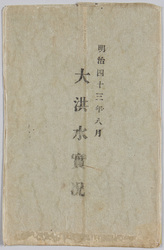 明治四十三年八月
大洪水實况